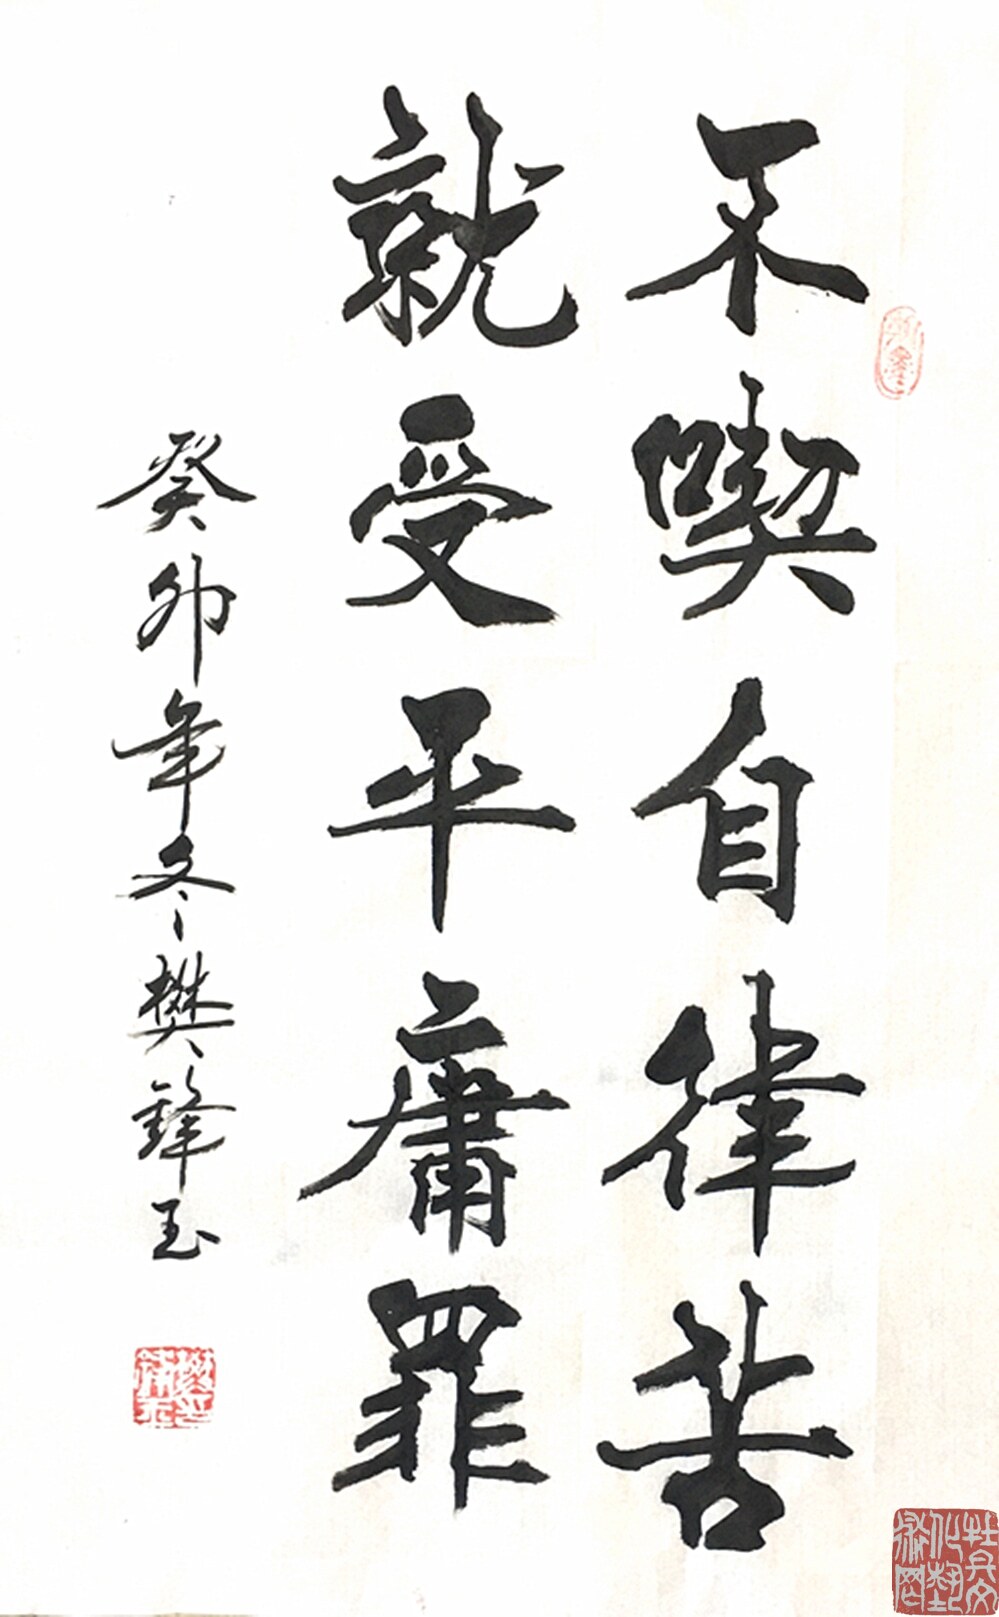 不喫自律苦
就受平庸罪
癸卯年冬樊鋒玉